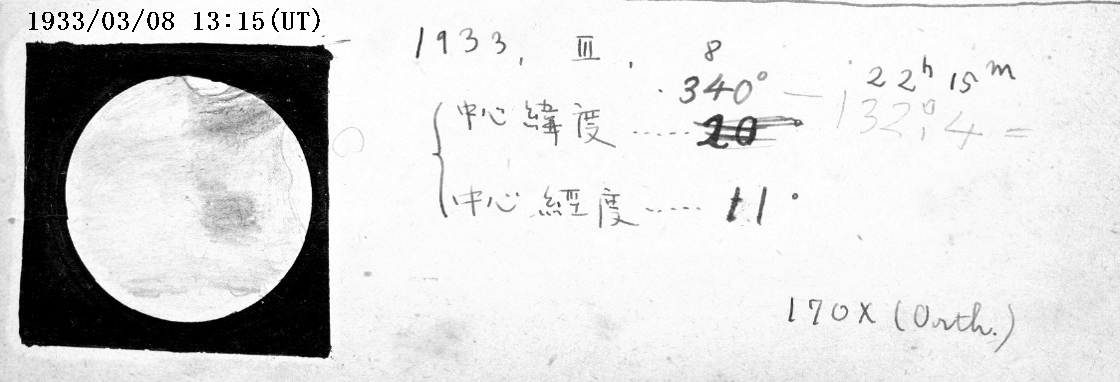 1933/03/08 13:15(UT)
1933, III, 8
22h 15m
中心緯度 ...... 340° — 132.°4 =
20
中心經度 ...... 11°
170X (Orth.)